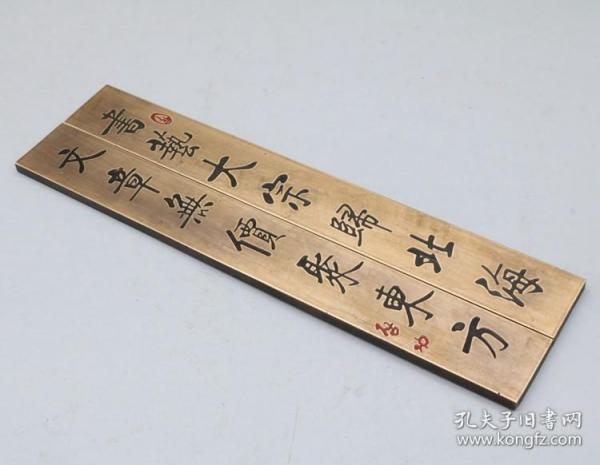 書藝大宗歸北海
文章無價聚東方
启功
孔夫子旧书网
www.kongfz.com